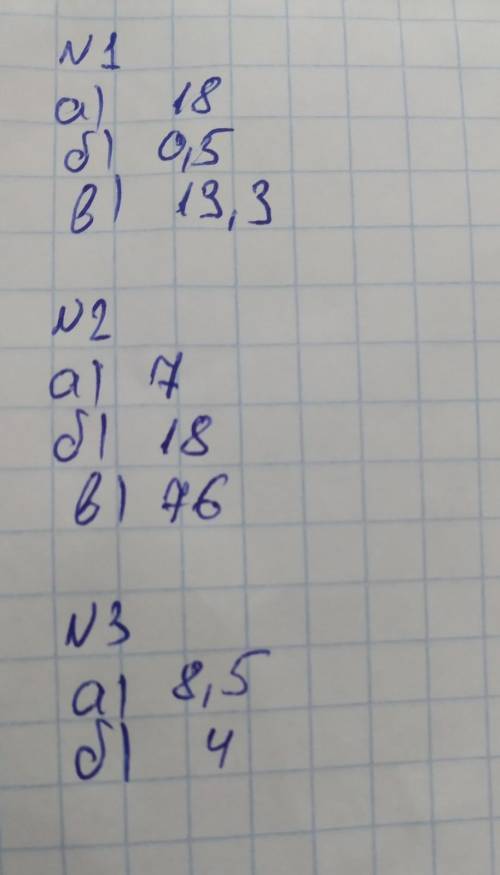 N1
а) 18
б) 0,5
в) 13,3
N2
а) 7
б) 18
в) 76
N3
а) 8,5
б) 4